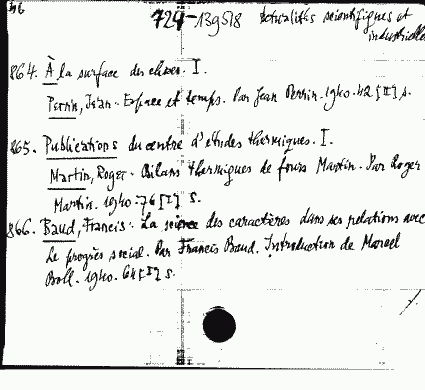 729-139518 Actualités scientifiques et
industrielles
864. À la surface des choses. I.
Perrin, Jean. Espace et temps. Par Jean Perrin. 1940. 42 [I] s.
865. Publications du centre d'études thermiques. I.
Martin, Roger. Bilans thermiques de fours Martin. Par Roger
Martin. 1940. 76 [I] s.
866. Baud, Francis. La science des caractères dans ses relations avec
le progrès social. Par Francis Baud. Introduction de Marcel
Boll. 1940. 64 [I] s.